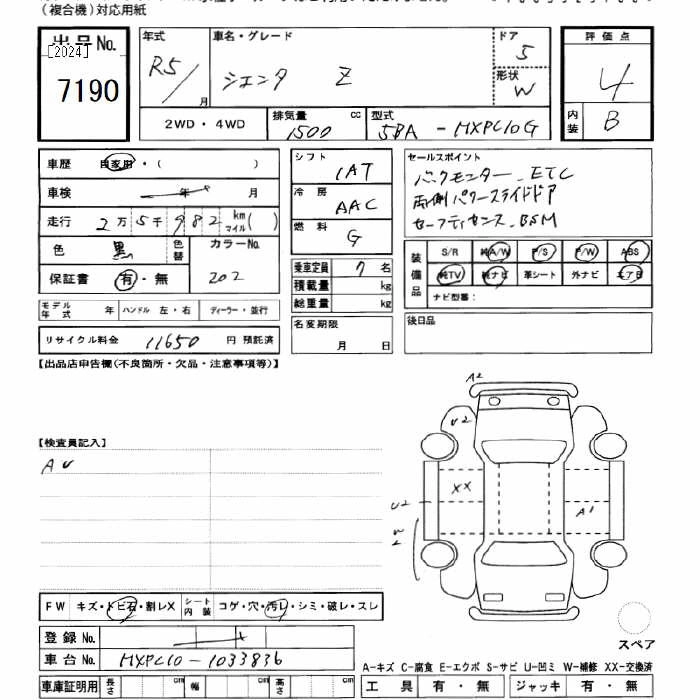 (複合機)対応用紙
出品No.
[2024]
7190
年式
R5/
月
車名・グレード
シエンタ Z
ドア
5
形状
W
評価点
4
内装
B
2WD・4WD
排気量
1500
cc
型式
5BA-MXPC10G
車歴
自家用・( )
車検
年
月
走行
2万5千982
km
マイル
( )
色
黒
色替
カラーNo.
202
保証書
有・無
モデル年式
年
ハンドル 左・右
ディーラー・並行
リサイクル料金
11650
円 預託済
シフト
IAT
冷房
AAC
燃料
G
乗車定員
7
名
積載量
kg
総重量
kg
名変期限
月 日
セールスポイント
バックモニター、ETC
両側パワースライドドア
セーフティセンス、BSM
装備品
S/R
純A/W
P/S
P/W
ABS
純TV
純ナビ
革シート
外ナビ
エアB
ナビ型番:
後日品
【出品店申告欄(不良箇所・欠品・注意事項等)】
【検査員記入】
AU
A2
U2
XX
U2
A1
W2
FW
キズ・トビ石・割レX
シート内装
コゲ・穴・汚レ・シミ・破レ・スレ
登録No.
車台No.
MXPC10-1033836
スペア
A-キズ C-腐食 E-エクボ S-サビ U-凹ミ W-補修 XX-交換済
車庫証明用
長さ
cm
幅
cm
高さ
cm
工具
有・無
ジャッキ
有・無